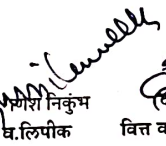 गणेश निकुंभ
व.लिपीक वित्त व